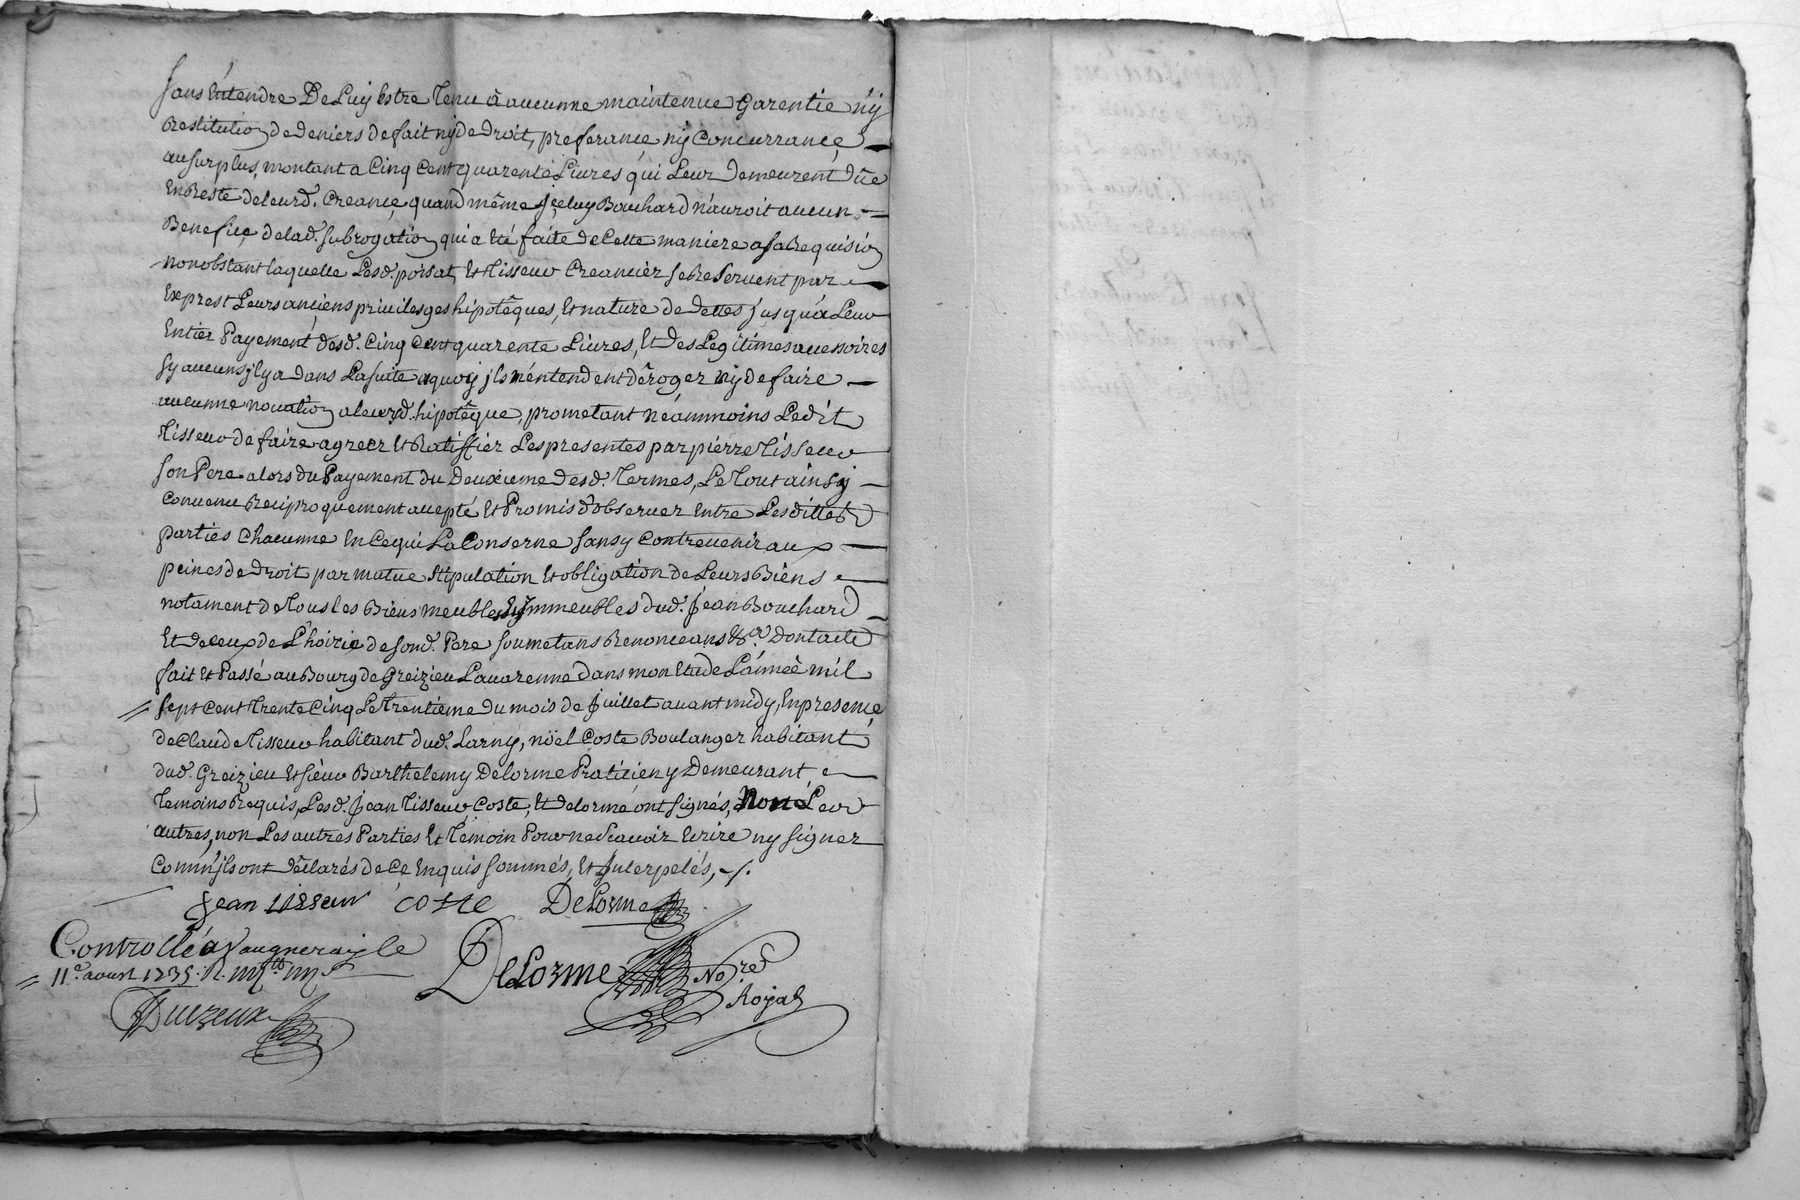 sans Entendre De Luy Estre Tenu à aucunne maintenue Garentie n'y
Restitution de deniers de fait ny de droit, preferance, ny Concurrance,
au surplus, montant a Cinq Cent quarente Livres qui Leur Demeurent dûe
En Reste de leurd. Creance, quand même jceluy Bouchard n'auroit aucun
Benefice de lad. subrogation qui a Eté faite de Cette maniere a sa Requision
nonobstant laquelle Lesd. poisat, Et Tisseur Creancier se Reservent par
Exprest Leurs anciens privileges hipotêques, Et nature de dettes jusqu'à Leur
Entier Payement desd. Cinq Cent quarente Livres, Et des Legitimes accessoires
sy aucuns jl y a dans La suite a quoy jls n'entendent dêroger ny de faire
aucunne novation a leursd. hipotêque, prometant néammoins Ledit
Tisseur de faire agreer Et Ratiffier Les presentes par pierre Tisseur
son Pere alors du Payement du Deuxieme desd. Termes, Le Tout ainsy
Convenu Reciproquement accepté Et Promis d'observer Entre Lesdittes
parties Chacunne En Ce qui La Conserne sans y Contrevenir aux
peines de droit par mutue stipulation Et obligation de Leurs Biens
notament de Tous les Biens meubles Et jmmeubles dud. Jean Bouchard
Et de ceux de L'hoirie de sond. Pere soumetans Renonceans &ca Dont acte
fait Et Passé au Bourg de Greizieu Lavarenne dans mon Etude L'année mil
sept Cent Trente Cinq Le Trentieme du mois de Juillet avant midy, En presence
de Claude Tisseur habitant dud. Larny, nöel Coste Boulanger habitant
dud. Greizieu Et sieur Barthelemy Delorme Praticien y Demeurant
Temoins Requis, Lesd. Jean Tisseur, Coste, Et delorme ont signés, Non Leur
autres, non Les autres Parties Et Témoin Pour ne sçavoir Ecrire ny signer
Comm'jls ont déclarés de Ce Enquis sommés, Et Interpelés, ./.
Jean tisseur coste DeLorme
Controllé a Vaugneray le
11e aoust 1735. R.
DeLorme No.re Royal